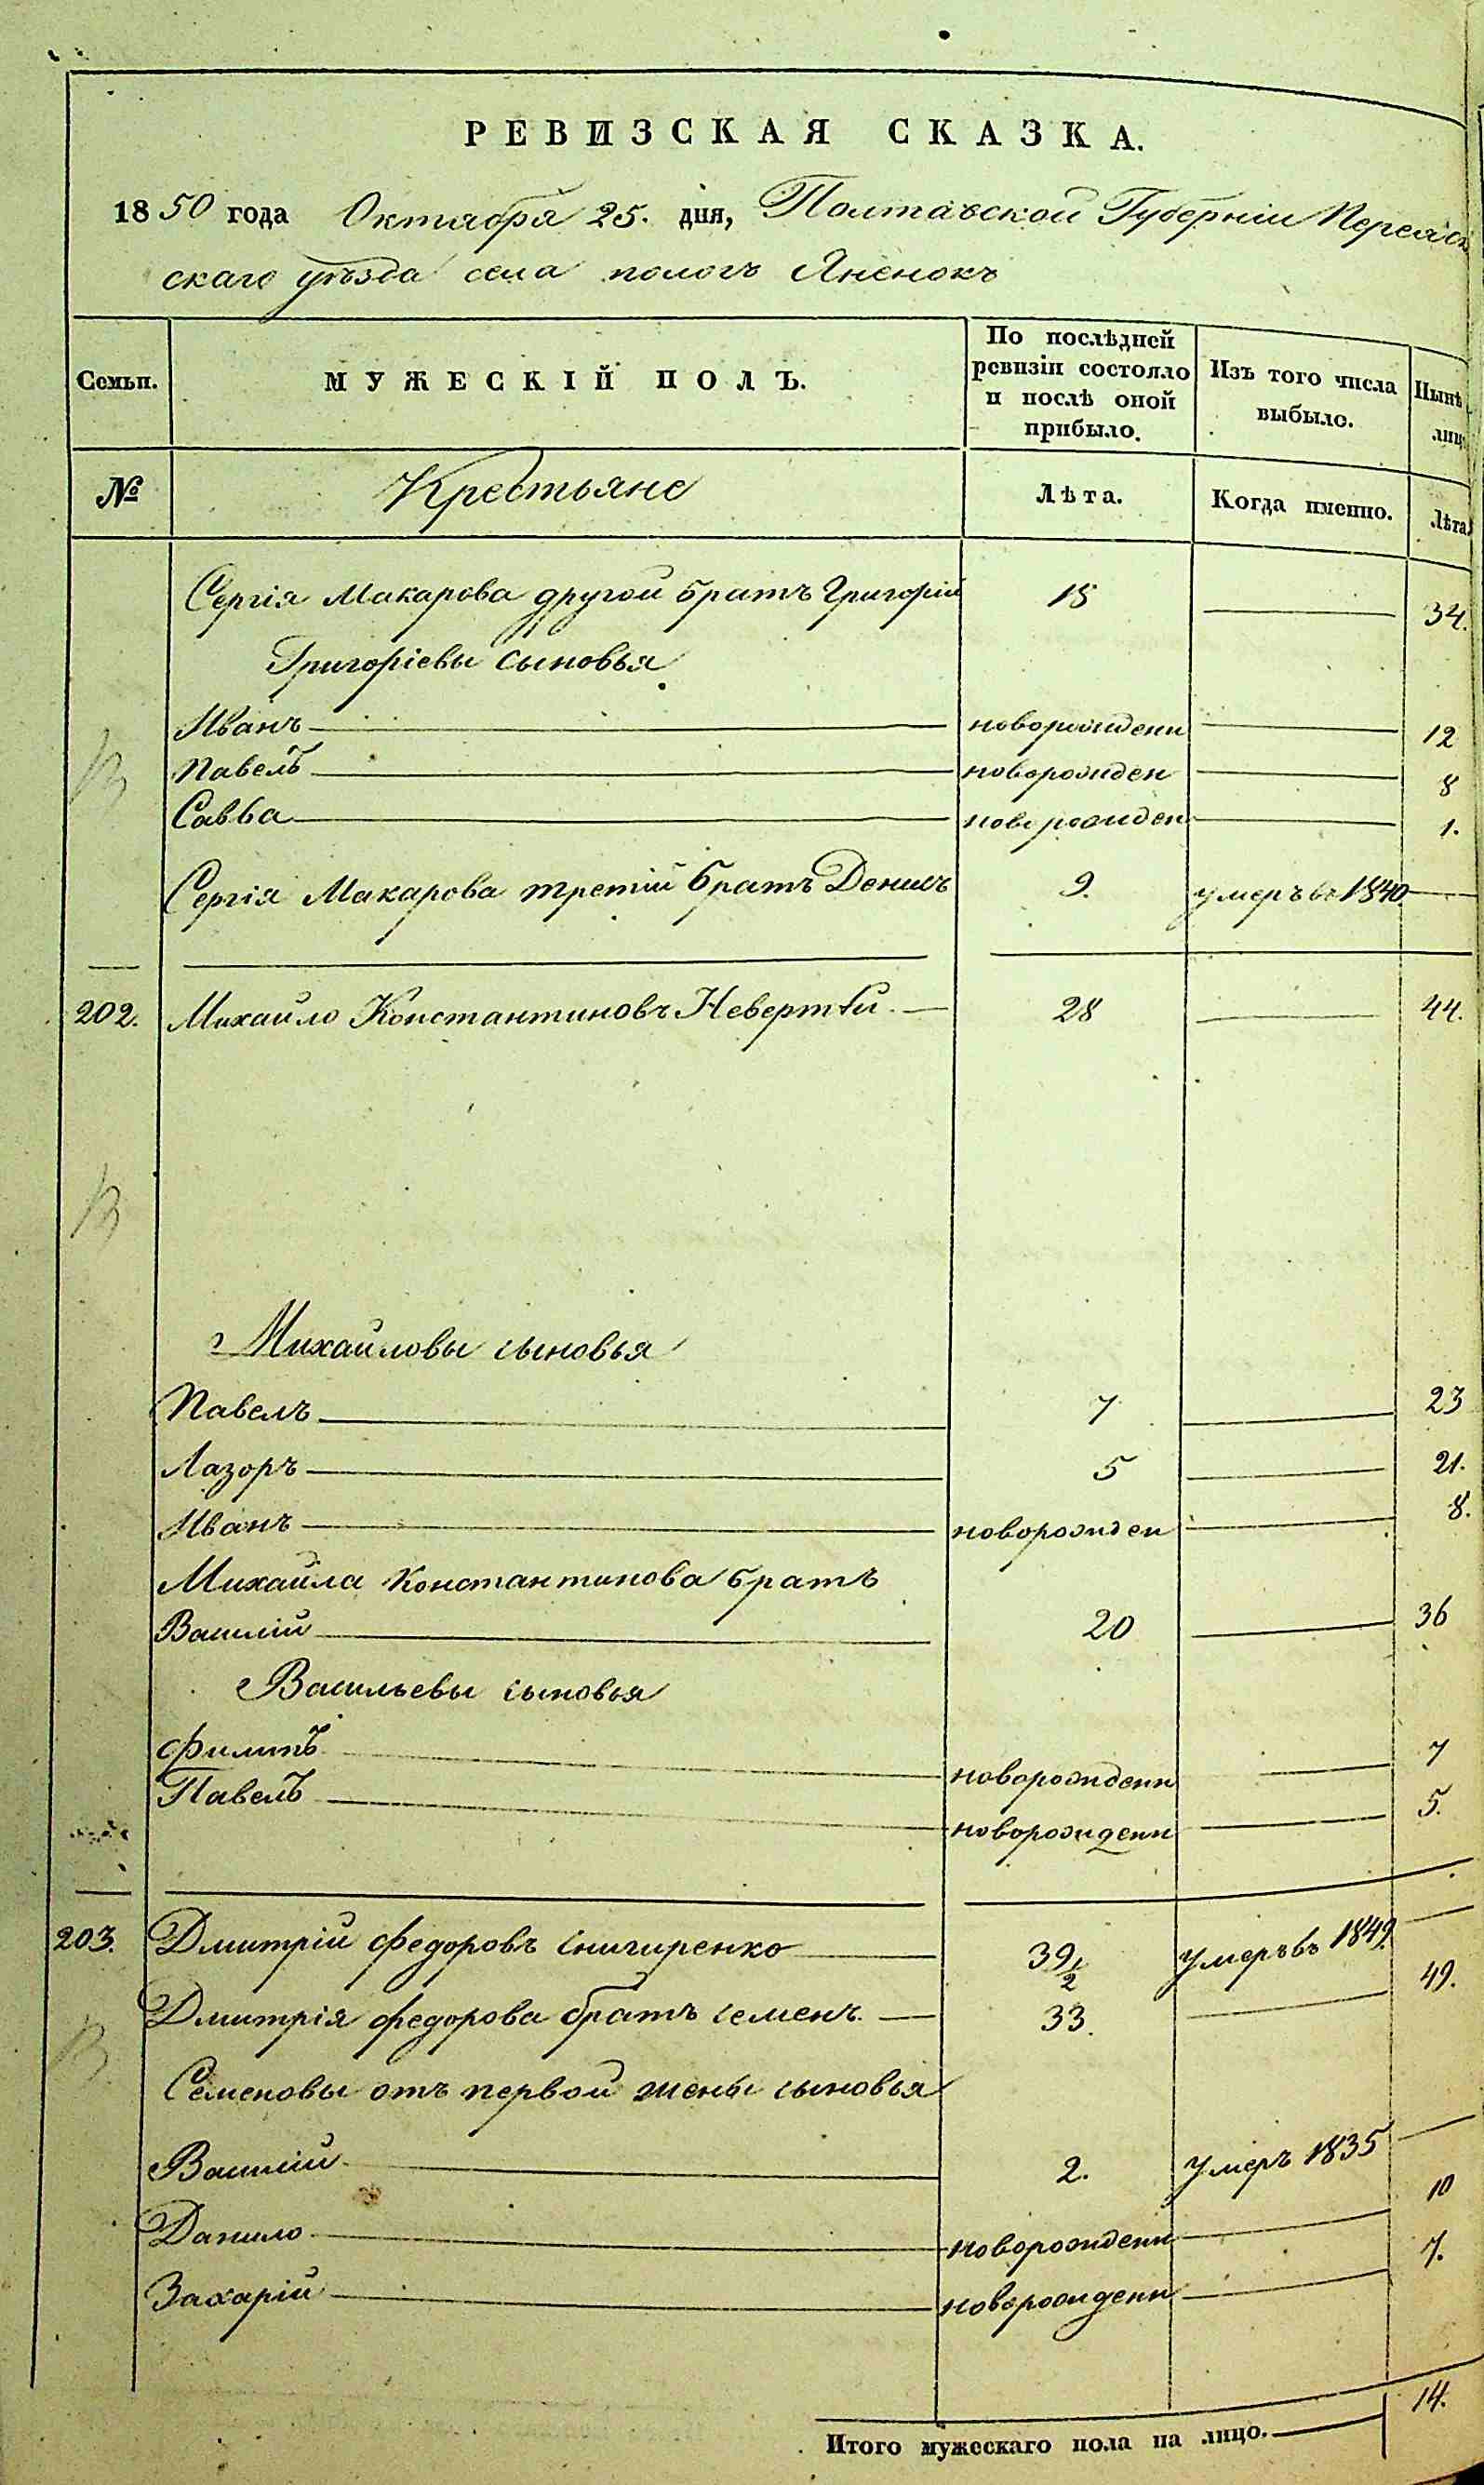 РЕВИЗСКАЯ СКАЗКА.
1850 года Октября 25. дня, Полтавской Губерніи Переяс
скаго уѣзда села пологъ Яненокъ
Семьи. МУЖЕСКІЙ ПОЛЪ. По послѣдней ревизіи состояло и послѣ оной прибыло. Изъ того числа выбыло. Нынѣ лиц
№ Крестьяне Лѣта. Когда именно. Лѣта
Сергія Макарова другой братъ Григорій 18 34.
Григоріевы сыновья
Иванъ новорожденн 12
Павелъ новорожден 8
Савва новорожден 1.
Сергія Макарова третій братъ Денисъ 9. умеръ въ 1840
202. Михайло Константиновъ Невертѣй. 28 44.
Михайловы сыновья
Павелъ 7 23
Лазоръ 5 21.
Иванъ новорожден 8.
Михайла Константинова братъ
Василій 20 36
Васильевы сыновья
Филипъ новорожденн 7
Павелъ новорожденн 5.
203. Дмитрій Федоровъ Снигиренко 39 1/2 умеръ въ 1849
Дмитрія Федорова братъ Семенъ. 33. 49.
Семеновы отъ первой жены сыновья
Василій 2. умеръ 1835
Данило новорожденн 10
Захарій новорожденн 7.
Итого мужескаго пола на лицо. 14.